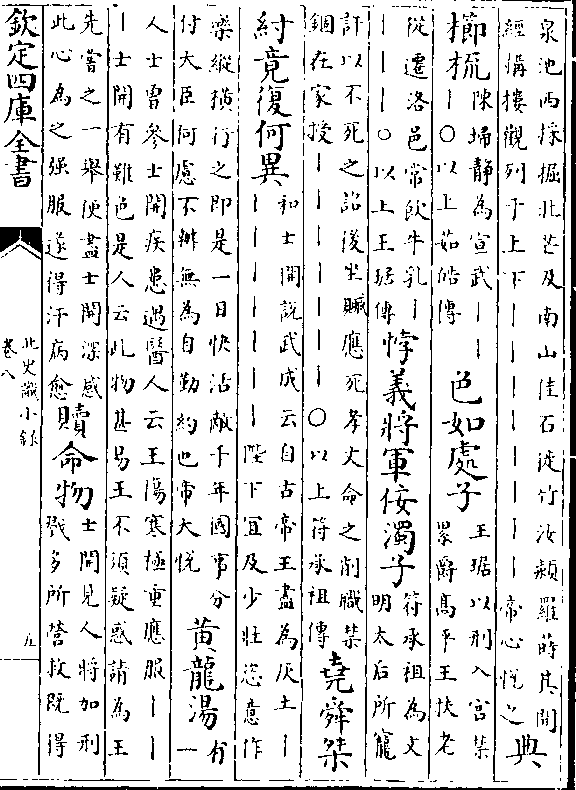 泉池西採掘北芒及南山佳石徙竹汝潁羅蒔其間
經構樓觀列于上下｜｜｜｜｜｜｜｜帝心悅之
典
櫛梳
陳埽靜為宣武｜｜
｜○以上茹皓傳
色如處子
王琚以刑入宮禁
累爵高平王扶老
從遷洛邑常飲牛乳｜
｜｜｜○以上王琚傳
悖義將軍佞濁子
符承祖為文
明太后所寵
許以不死之詔後坐贓應死孝文命之削職禁
錮在家授｜｜｜｜｜｜○以上符承祖傳
堯舜桀
紂竟復何異
和士開說武成云自古帝王盡為灰土｜
｜｜｜｜｜｜｜陛下宜及少壯恣意作
樂縱橫行之即是一日快活敵千年國事分
付大臣何慮不辦無為自勤約也帝大悅
黄龍湯
有
一
人士曾參士開疾患遇醫人云王傷寒極重應服｜｜
｜士開有難色是人云此物甚易王不須疑惑請為王
先嘗之一舉便盡士開深感
此心為之强服遂得汗病愈
贖命物
士開見人將加刑
戮多所營救既得
欽定四庫全書
北史識小錄
卷八
五